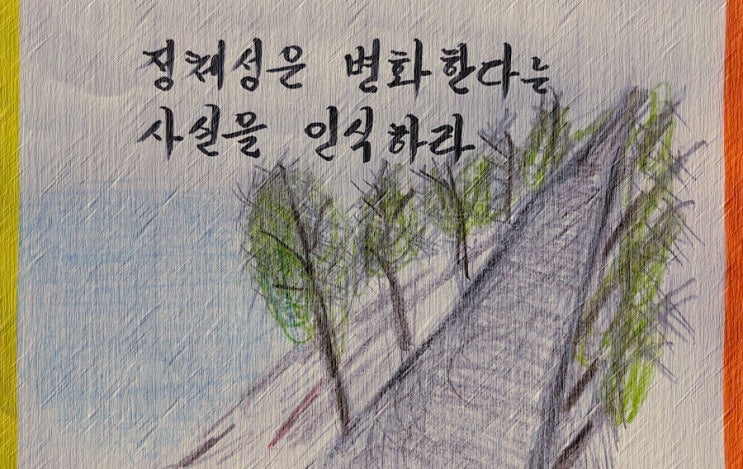 정체성은 변화한다는
사실을 인식하라